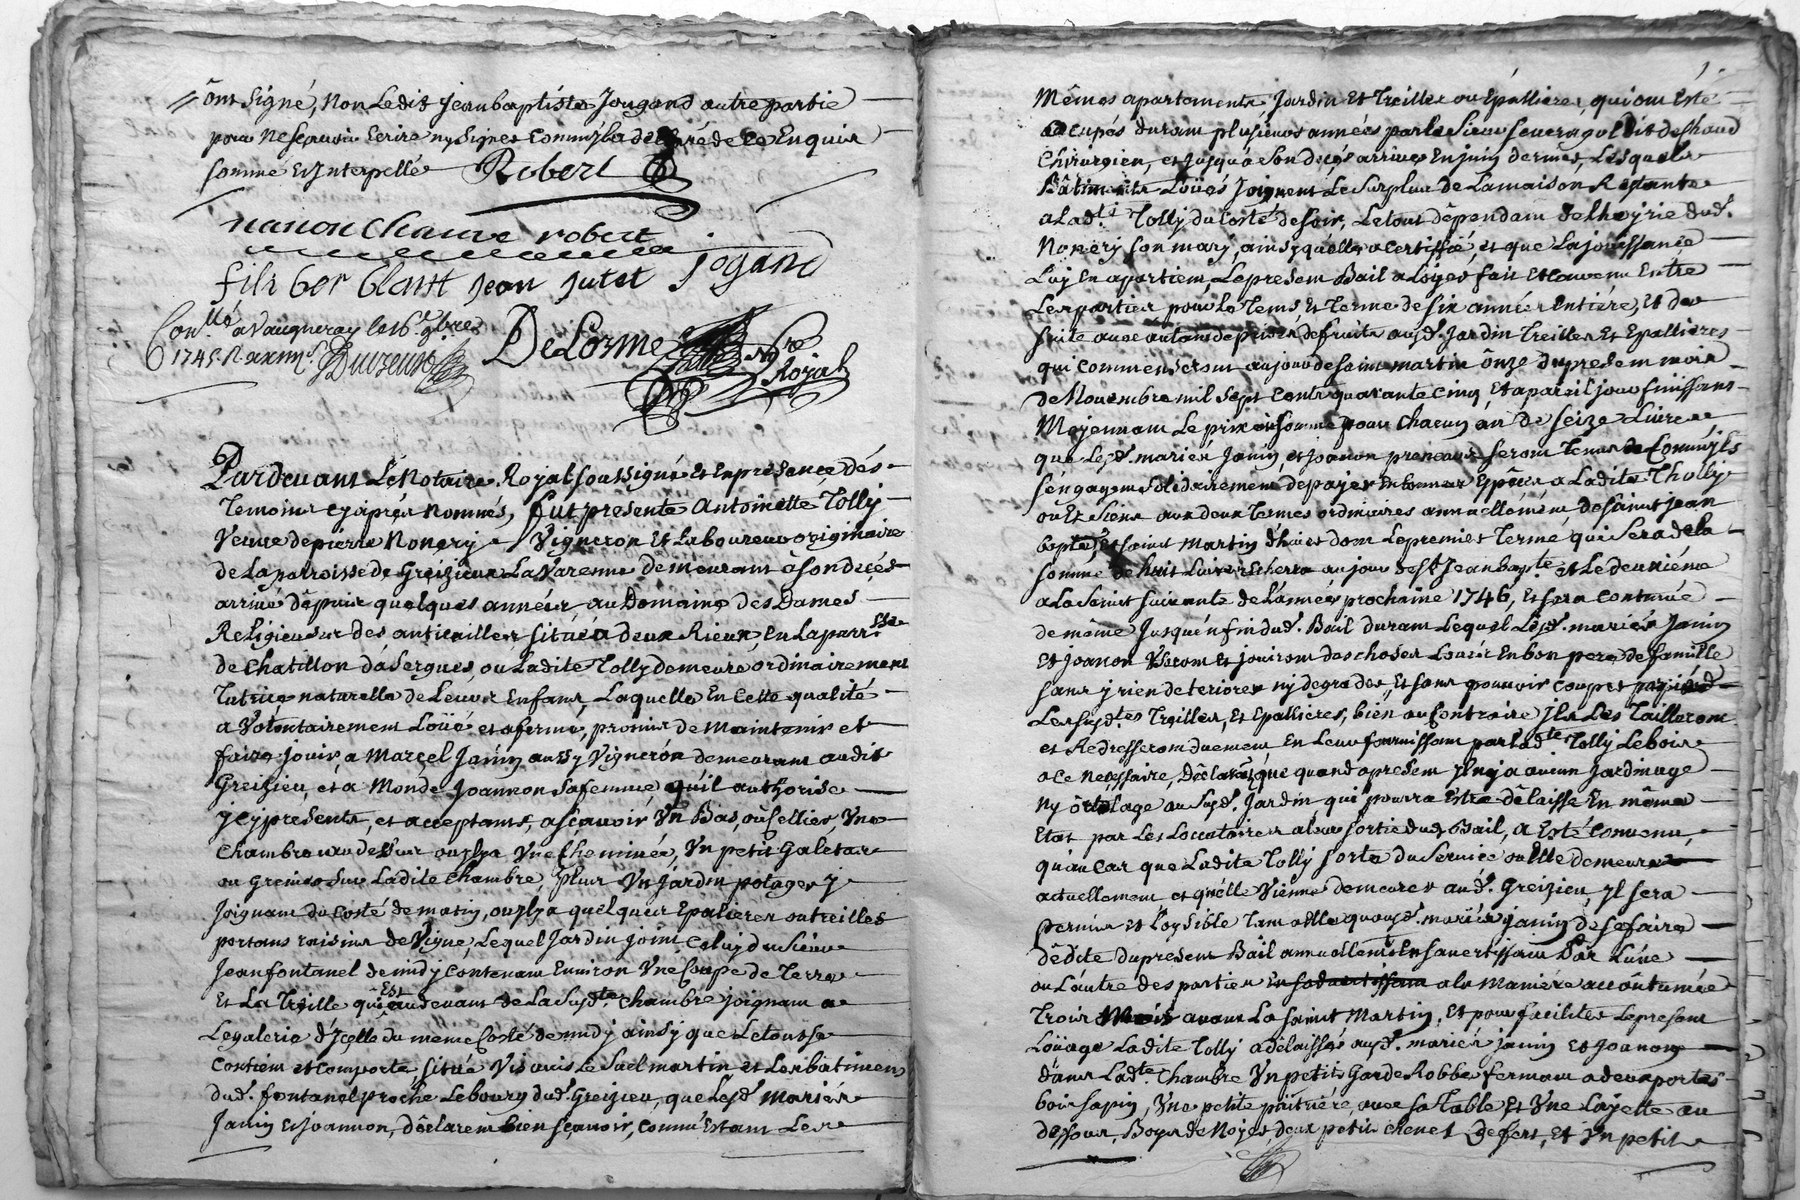 ont Signé, Non Ledit Jean baptiste Jougand autre partie
pour ne Scavoir Ecrire ny Signer Comm'il a declaré de ce Enquis
sommé et Interpellé Robert
nanon Chaure robert
fils ber blant Jean Jutet jogand
Con.llé a Vaugneray le 16e 9bre
1745 R
DeLorme No.re Royal
Pardevant Le Notaire Royal soussigné et En presence des
Temoins cy après Nommés, fut presente Antoinette Tolly
Veuve de pierre Nonery Vigneron et Laboureur originaire
de La parroisse de Greizieu La Varenne demeurant a son decés
arrivé depuis quelques années au Domaine des Dames
Religieuses des antiquailles situé a deux Rieux, En La parr.sse
de Chatillon d'asergues, ou Ladite Tolly demeure ordinairement
Tutrice naturelle de Leurs Enfans, Laquelle En cette qualité
a Volontairement Loüé et afermé, promis de Maintenir et
faire Jouir a Marcel Janin aussy Vigneron demeurant audit
Greizieu, et a Monde Joannon sa femme, qu'il authorise
jcy presents, et acceptants, a sçavoir Vn Bas, ou Cellier, Vne
Chambre au dessus ou jl ya Vne Cheminée, Vn petit Galetas
ou Grenier Sur Ladite Chambre, plus Vn Jardin potager y
Joignant du Costé de matin, ou jl ya quelques Epaliers ou treilles
portans raisins de Vigne, Lequel Jardin joint Celuy du Sieur
Jean fontanel de midy, contenant Environ Vne Coupe de Terre
Et La Treille qui Est au devant de La Susd.te Chambre joignant a
Le galerie d'Jcelle du meme Costé de midy ainsy que Le tout se
Contient et Comporte situé Vis a vis Le S.r el martin et Les bâtimens
dud. fontanel proche Le bourg dud. Greizieu, que Lesd. Mariés
Janin et Joannon, déclarent bien Sçavoir, comm'Estant Les
Mêmes apartements Jardin Et Treilles ou Epallieres qui ont Esté
ocupés durant plusieurs années par le Sieur
Chirurgien, et jusqu'a Son decés arrivé En juin dernier, Lesquels
Bâtiments Loüés Joignent Le Surplus de La maison Restante
a Lad.te Tolly du Costé de soir, Le tout dépendant de L'hoyrie dud.
Nonery son mary, ainsy qu'elle a certiffié, et que La jouissance
Luy En apartient, Le present Bail a Loyer fait Et Convenu Entre
Les parties pour le Tems, et Terme de six années Entiere, Et de
suite avec autant de prises de fruits aud. Jardin Treilles Et Epallieres
qui Commenceront au jour de saint martin onze du present mois
de Novembre mil Sept Cents quarante cinq, Et a pareil jour finissant
Moyennant Le prix et somme pour Chacun an de Seize Livres
que Lesd. mariés Janin, et Joanon preneurs seront Tenus Comm'jls
s'engagent Solidairement de payer a Ladite Tholly
ou Et Siens aux deux Termes ordinaires annuellement, de Saint Jean
bapte, et Saint Martin d'hiver dont Le premier Terme qui Sera de la
somme de huit Livres Echerra au jour de St Jean bapte et Le deuxiéme
a La Saint suivante de L'année prochaine 1746, Et sera Continué
de même Jusqu'En fin dud. Bail durant Lequel Lesd. mariés Janin
Et Joanon Vseront et jouiront des choses Louées En bon pere de famille
sans y rien deteriorer ny degrader, Et sans pouvoir Couper
Les Susd.tes Treilles, Et Epallieres, bien au Contraire Jls Les Tailleront
et Redresseront duement En Leur fournissant par Lad.te Tolly Le bois
a Ce Necessaire, Déclarant que quand a present Jl ny a aucun Jardinage
Ny ôrtolage au Susd. Jardin qui pourra Estre délaissé En même
Etat par Les Loccataires a leur sortie dud. Bail, a Esté Convenu,
qu'au Cas que Ladite Tolly sorte du Service ou Elle demeure
actuellement et qu'elle Vienne demeurer aud. Greizieu, Jl sera
permis et Loysible Tant a Elle qu'auxd. mariés janin de se faire
dédite du present Bail annuellement En s'avertissant Par L'une
ou L'autre des parties a la maniére accoûtumée
Trois Mois avant La Saint Martin, Et pour faciliter Le present
Loüage Ladite Tolly a délaissés auxd. mariés janin Et Joanon
dans Lad.te Chambre Vn petit Garde Robbe fermant a deux portes
bois sapin, Vne petite pâtriere, avec sa Table Et Vne Layette au
dessous, Boys de Noyer, deux petits chenet de fert, Et Vn petit